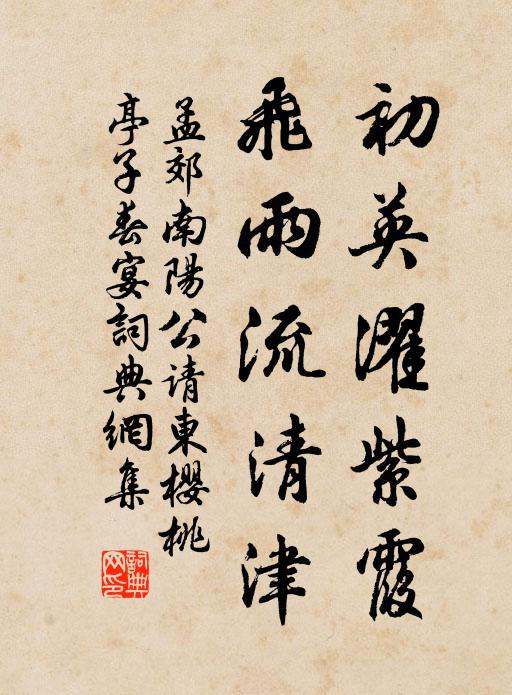 初英濯紫霞
飛雨流清津
孟郊南陽公请東櫻桃
亭子春宴詞典網集
詞典网印